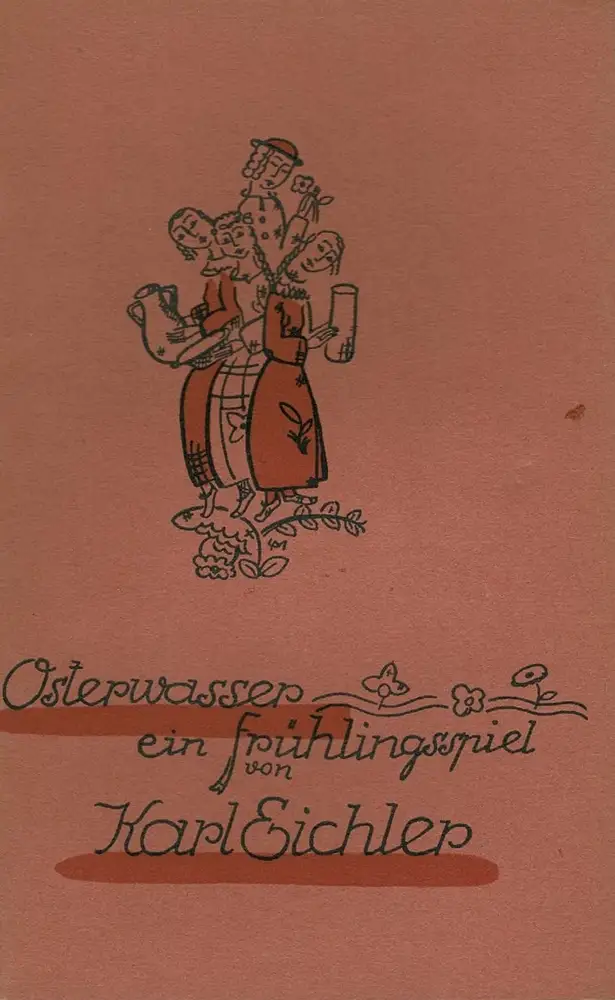 Osterwasser
ein Frühlingsspiel
von
Karl Eichler